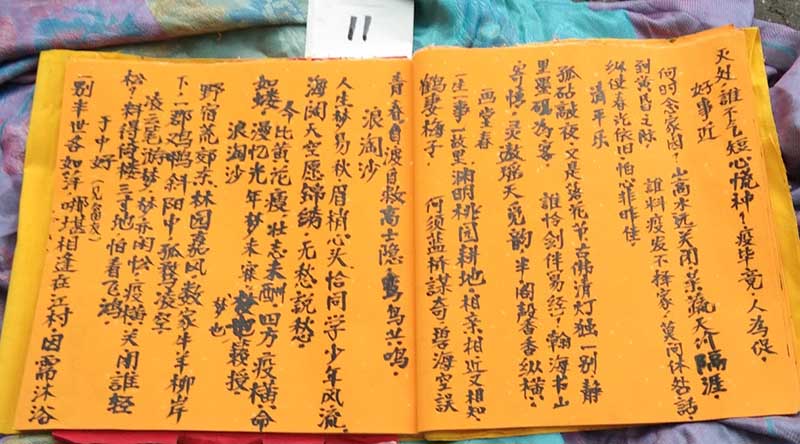 11
灭处,誰不气短心慌神?疫毕竟,人為促。
好事近
何时念家園?山高水远关闭。景疏天际隔涯,
到黄昏之际 誰料疫发不择家,莫问休話。
纵使春光依旧,怕心非昨佳。
清平乐
孤砧敲夜,又是落花节。古佛清灯独一别静
里墨砚為客 誰怜剑伴易经?翰海书山
寄情,灵敖瑶天覓韵,半阁馨香纵横。
画堂春
一生一事一故里,渊明桃园耕地。相亲相近又相知,
鹤妻梅子。 何须蓝桥謀奇,碧海空误
青春自渡自救高士隐,鸾鸟共鸣。
浪淘沙
人生梦易秋,眉梢心头,恰同学少年风流。
海阔天空愿锦绣,无愁説愁。
今比黄花瘦,壮志未酬,四方疫横,命
如蝼。漫忆光年梦未寐,梦也颖授。
浪淘沙
野宿荒郊东,林园尧风,数家牛羊柳岸
下。一群鸡鸭斜阳中,孤鹜凌空。
凌三毛游梦,梦乔闲松,疫横关闭誰轻
松?料得倚楼三寸地,怕看飞鸿。
于中好
一别半世各如萍,哪堪相逢在江村。因需沐浴